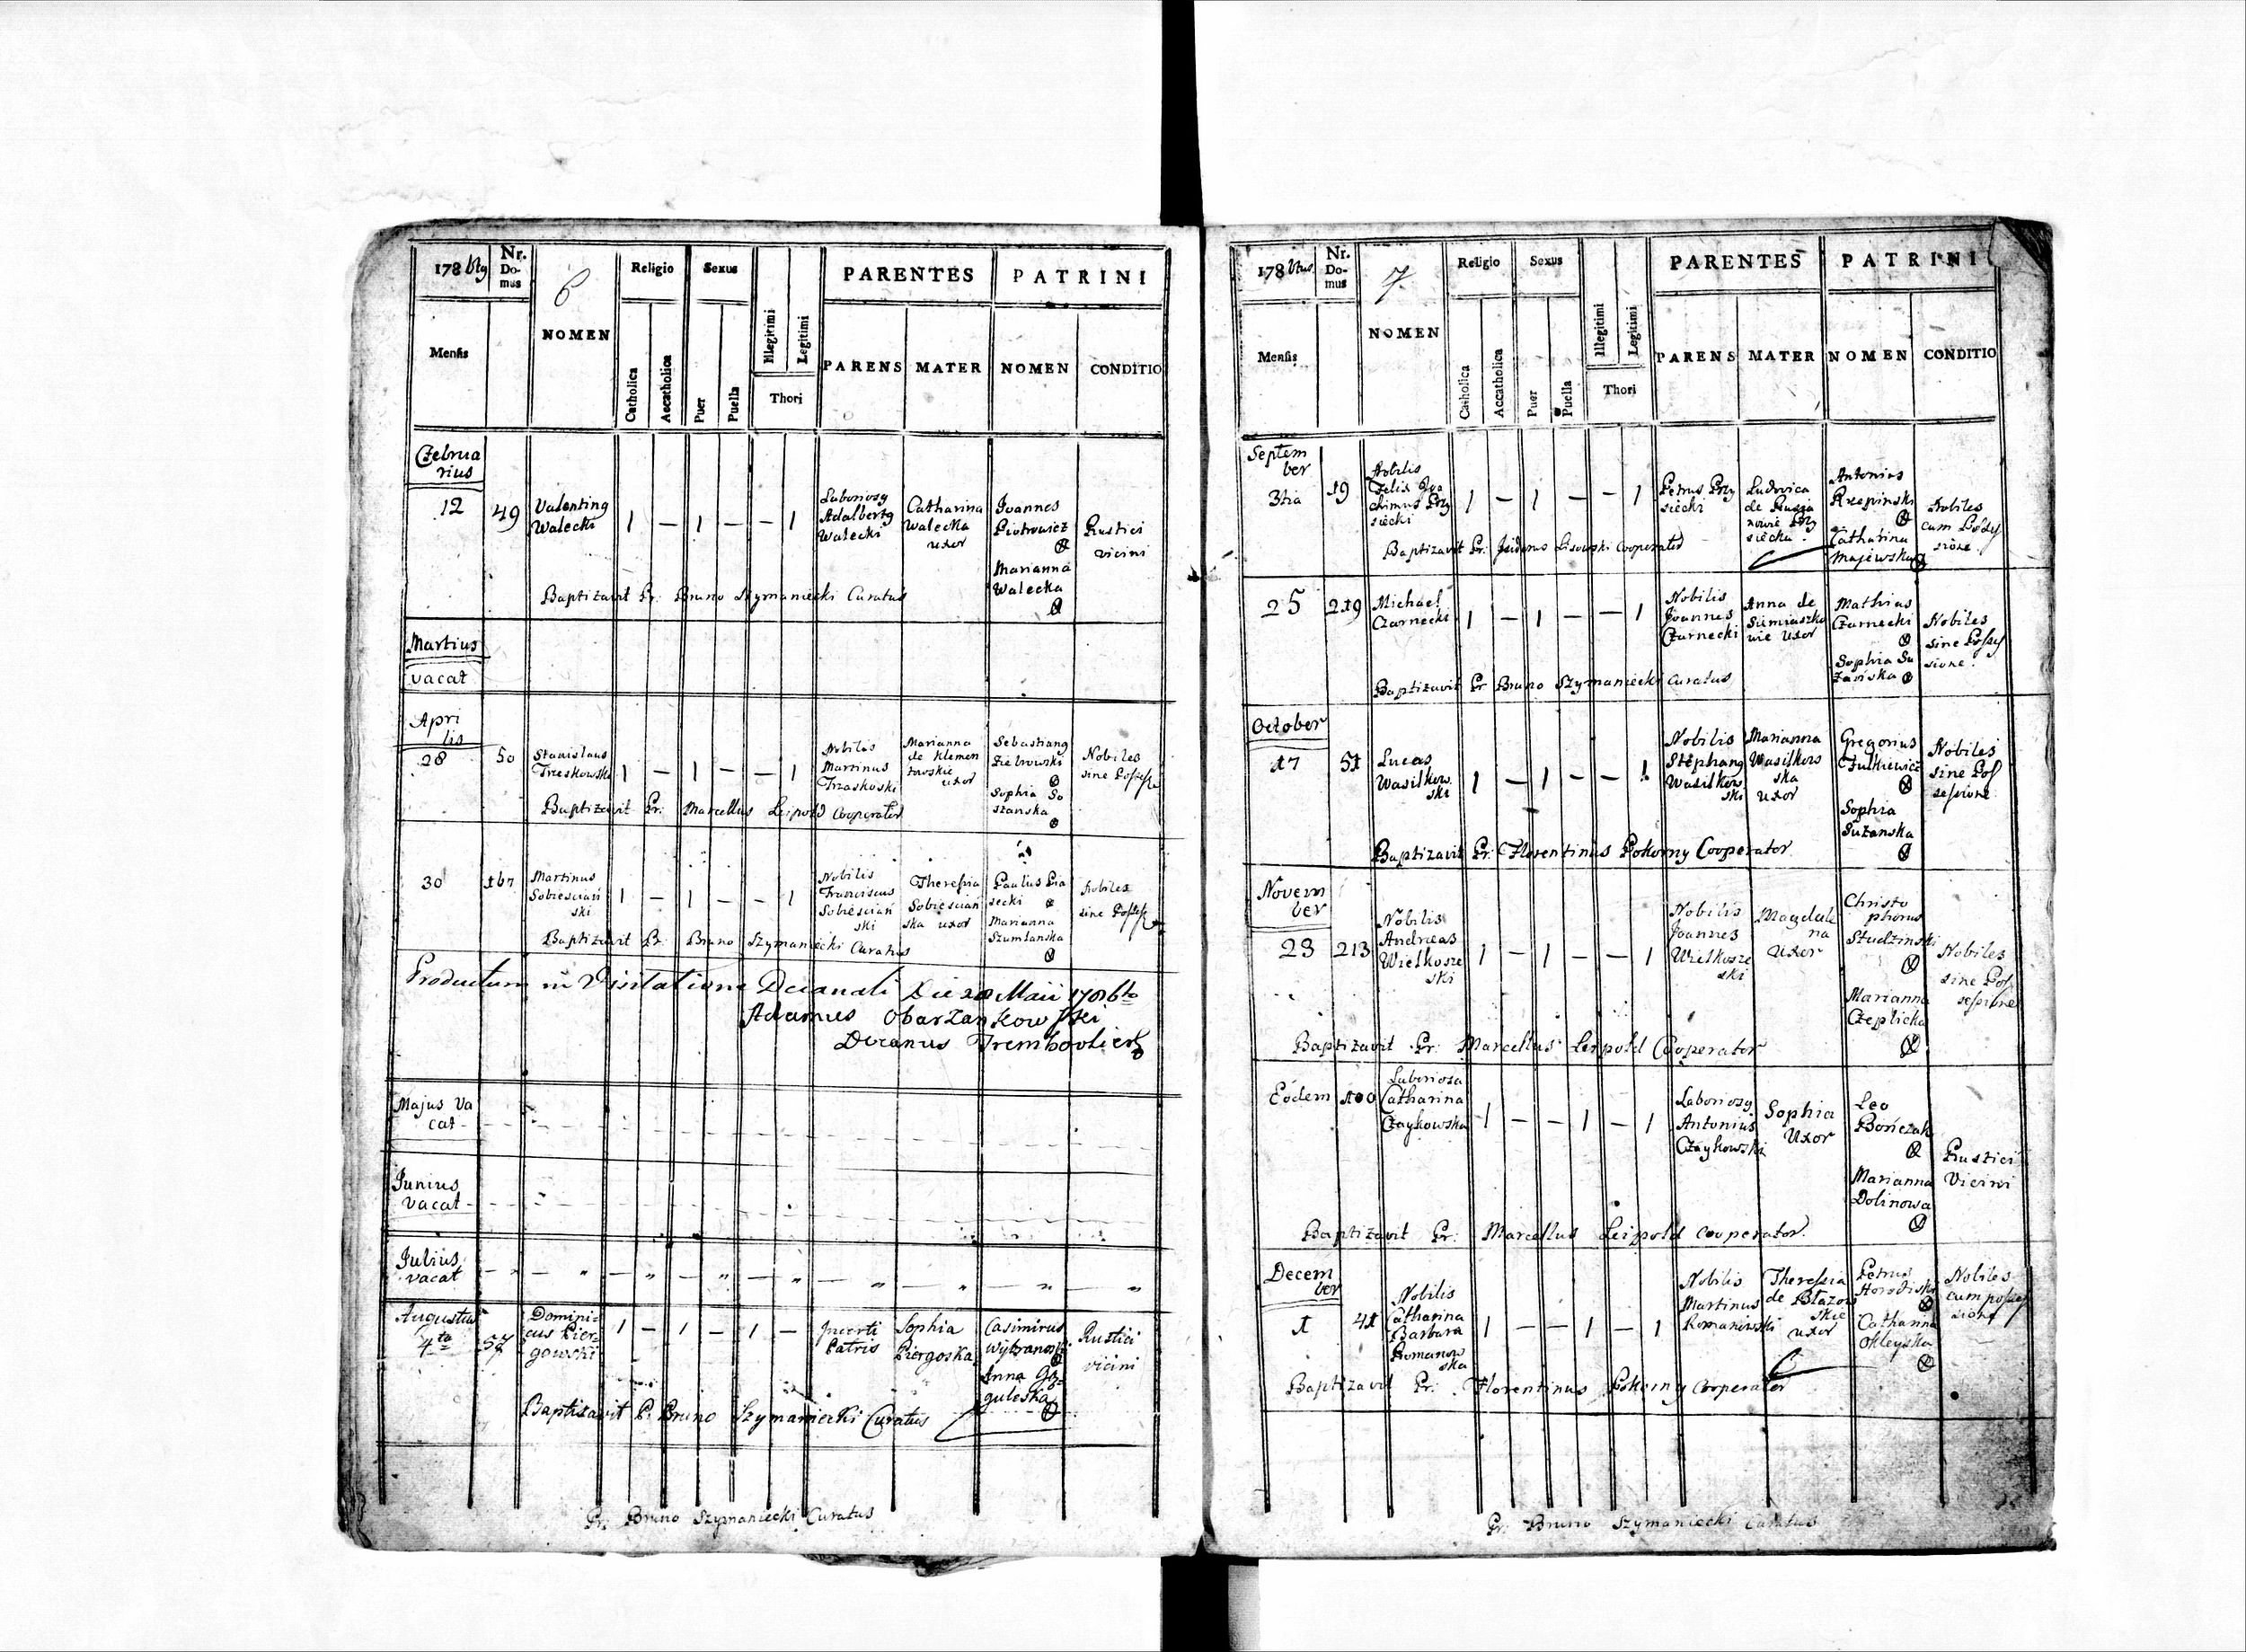 178 6tg
Nr. Do- mus
6
NOMEN
Religio
Sexus
PARENTES
PATRINI
Mensis
Catholica
Accatholica
Puer
Puella
Illegitimi
Legitimi
Thori
PARENS
MATER
NOMEN
CONDITIO
Februa
rius
12
49
Valenting
Walecki
1 — 1 — — 1
Laboriosg
Adalbertg
Walecki
Catharina
Walecka
uxor
Joannes
Piotrowicz
Marianna
Walecka
Rustici
vicini
Baptizavit Pr: Bruno Szymaniecki Curatus
Martius
vacat
Apri
lis
28
50
Stanislaus
Trzeskowski
1 — 1 — — 1
Nobilis
Martinus
Trzaskoski
Marianna
de Klemen
towskie
uxor
Sebastiang
Zielrowski
Sophia So
szanska
Nobiles
sine Possess
Baptizavit Pr: Marcellus Leipold Cooperator
30
167
Martinus
Sobiescian
ski
1 — 1 — — 1
Nobilis
Franciscus
Sobiescian
ski
Theressia
Sobiescian
ska uxor
Paulus Pia
secki
Marianna
Szumlanska
Nobiles
sine Possess
Baptizavit Pr: Bruno Szymaniecki Curatus
Productum in Visitatione Decanali Die 28 Maii 1786to
Adamus Obarzankowski
Decanus Trembovliensg
Majus Va
cat
Junius
vacat
Julius
vacat
Augustus
4ta
57
Domini-
cus Pier-
gowski
1 — 1 — 1 —
Incerti
Patris
Sophia
Piergoska
Casimirus
Wybranoski
Anna Go-
guleska
Rustici
vicini
Baptisavit P: Bruno Szymaniecki Curatus
Pr: Bruno Szymaniecki Curatus
178 6tus
Nr. Do- mus
7.
NOMEN
Religio
Sexus
PARENTES
PATRINI
Mensis
Catholica
Accatholica
Puer
Puella
Illegitimi
Legitimi
Thori
PARENS
MATER
NOMEN
CONDITIO
Septem
ber
3tia
19
Nobilis
Felix Joa
chimus Przy
siecki
1 — 1 — — 1
Petrus Przy
siecki
Ludovica
de
siecka
Antonius
Rzepinski
Catharina
Majewska
Nobiles
cum Posses
sione
Baptizavit Pr: Isidorus Lisowski Cooperator
25
219
Michael
Czarnecki
1 — 1 — — 1
Nobilis
Joannes
Czarnecki
Anna de
Siemiaszko
wie Uxor
Mathias
Czarnecki
Sophia Su
zańska
Nobiles
sine Posses
sione.
Baptizavit Pr Bruno Szymaniecki Curatus
October
17
51
Lucas
Wasilkow
ski
1 — 1 — — 1
Nobilis
Stephang
Wasilkow
ski
Marianna
Wasilkow
ska
uxor
Gregorius
Czulkiewicz
Sophia
Suzanska
Nobiles
sine Pos
sessione
Baptizavit Pr: Florentinus Pokorny Cooperator
Novem
ber
23
213
Nobilis
Andreas
Wielkosze
ski
1 — 1 — — 1
Nobilis
Joannes
Wielkosze
ski
Magdale
na
Uxor
Christo
phorus
Studzinski
Marianna
Czeplicka
Nobiles
sine Pos
sessione
Baptizavit Pr: Marcellus Leipold Cooperator
Eodem
100
Laboriosa
Catharina
Czaykowska
1 — — 1 — 1
Laboriosg
Antonius
Czaykowski
Sophia
Uxor
Leo
Bończak
Marianna
Dolinowa
Rustici
Vicini
Baptizavit Pr: Marcellus Leipold Cooperator
Decem
ber
1
41
Nobilis
Catharina
Barbara
Romanow
ska
1 — — 1 — 1
Nobilis
Martinus
Romanowski
Theressia
de Błazow
skie
uxor
Petrus
Horodiski
Catharina
Okleyska
Nobiles
cum posses
sione
Baptizavit Pr: Florentinus Pokorny Cooperator
Pr: Bruno Szymaniecki Curatus